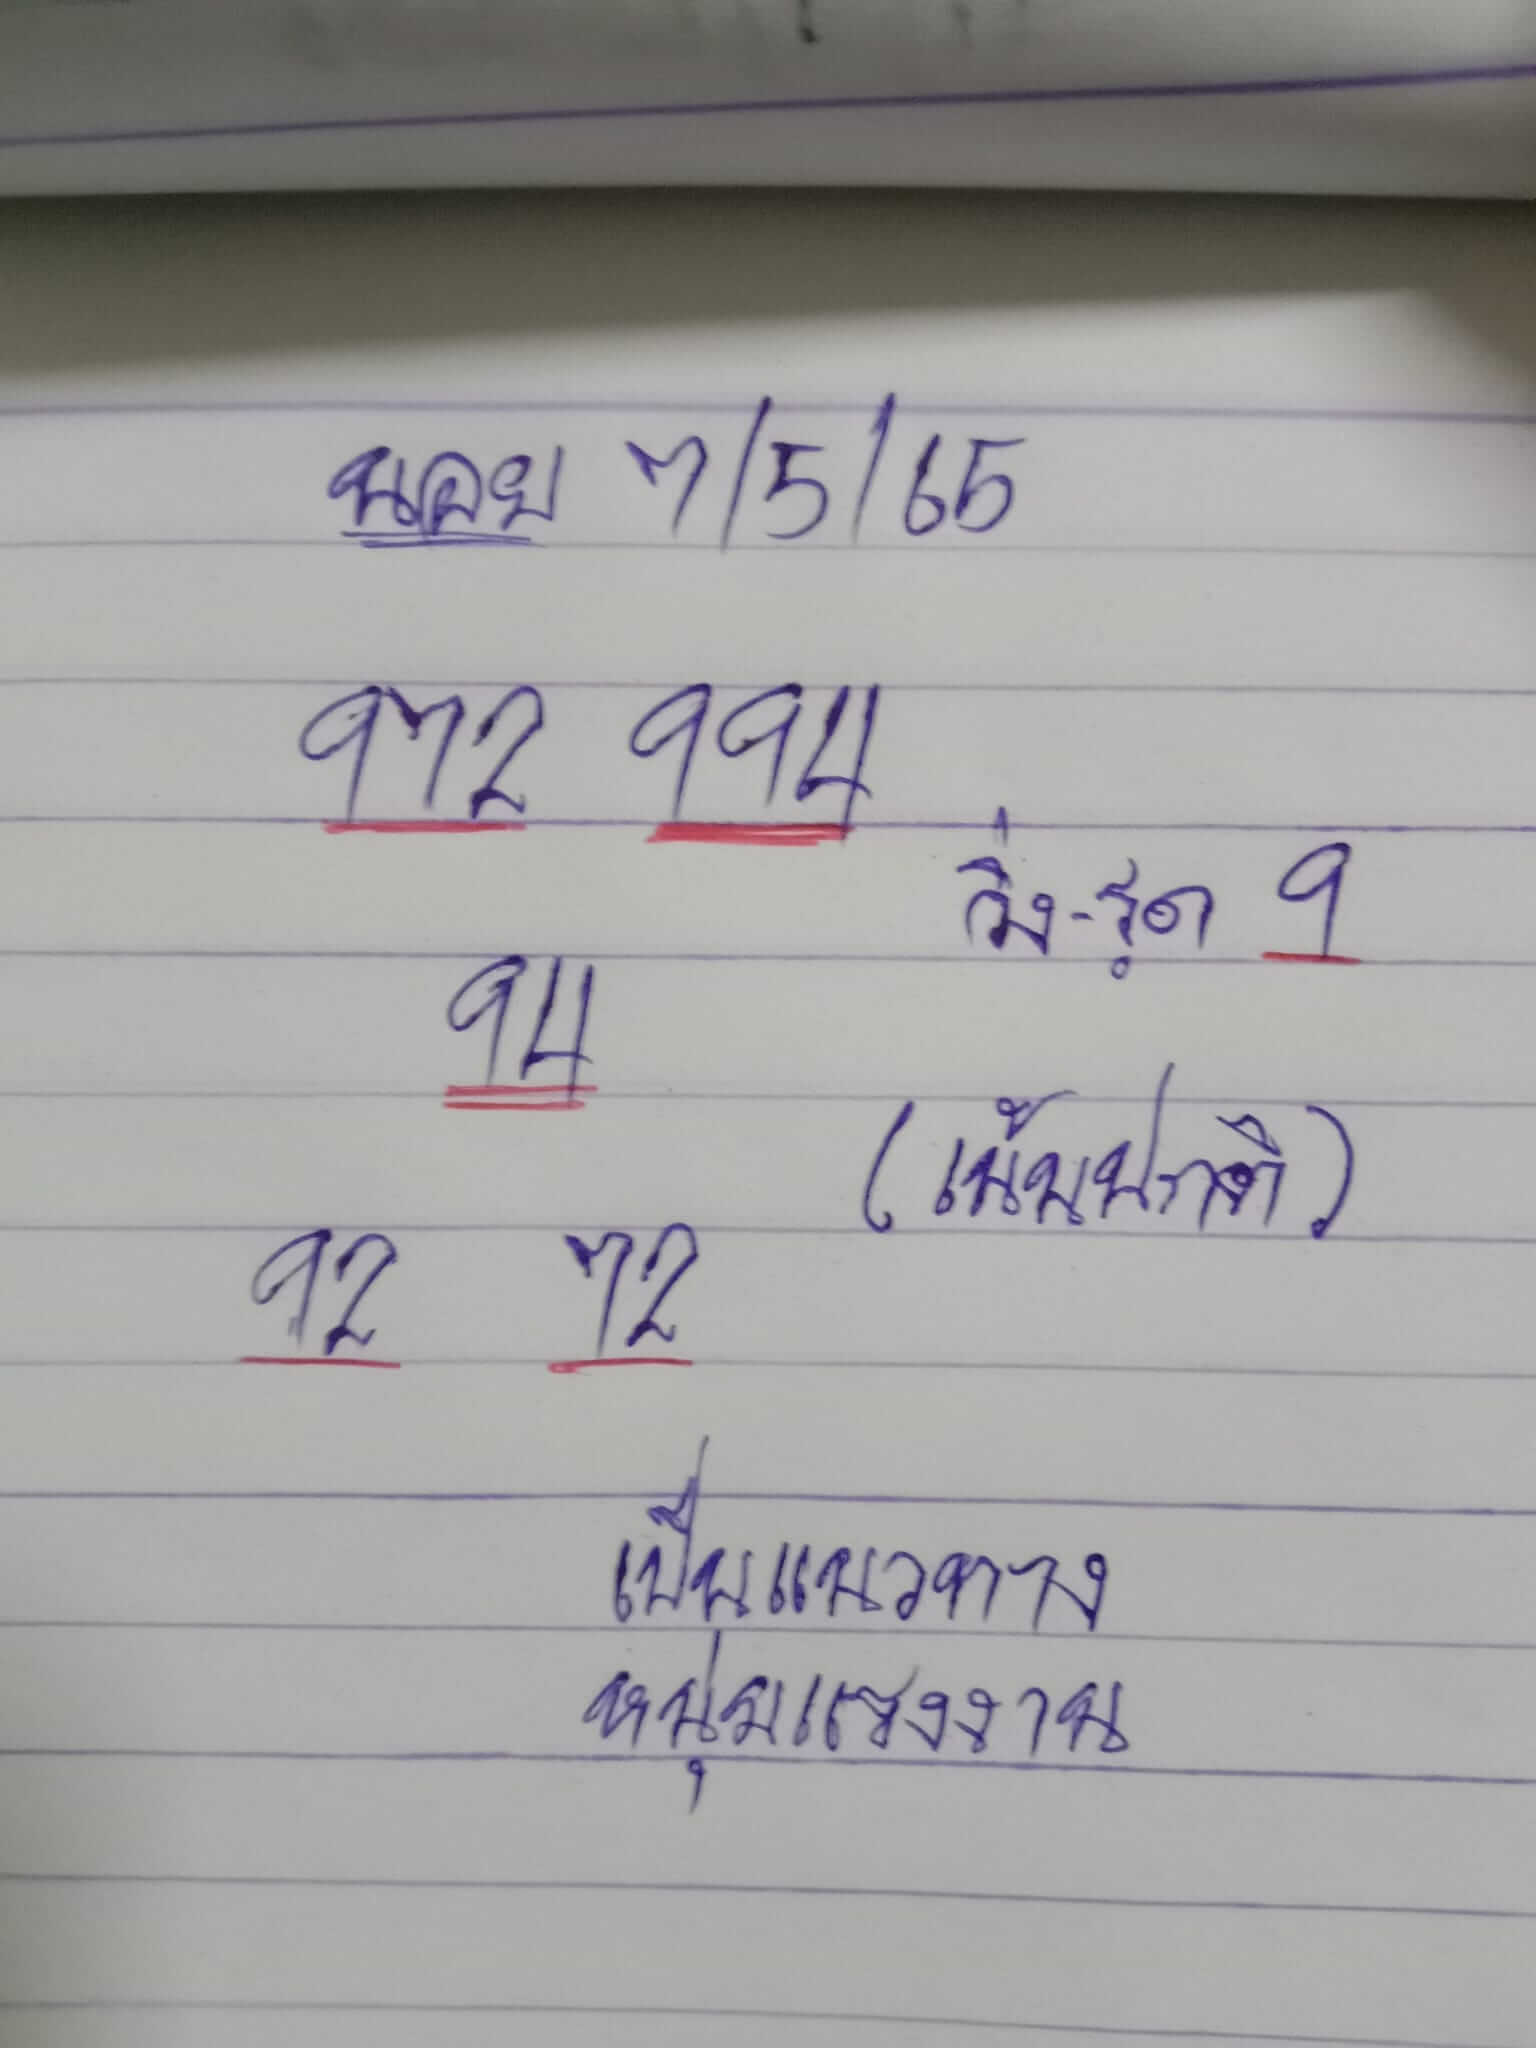 นอย 7/5/65
972 994
วิ่ง-รูด 9
94
(เน้นปรกติ)
92 72
เป็นแนวทาง
หนุ่มแรงงาน